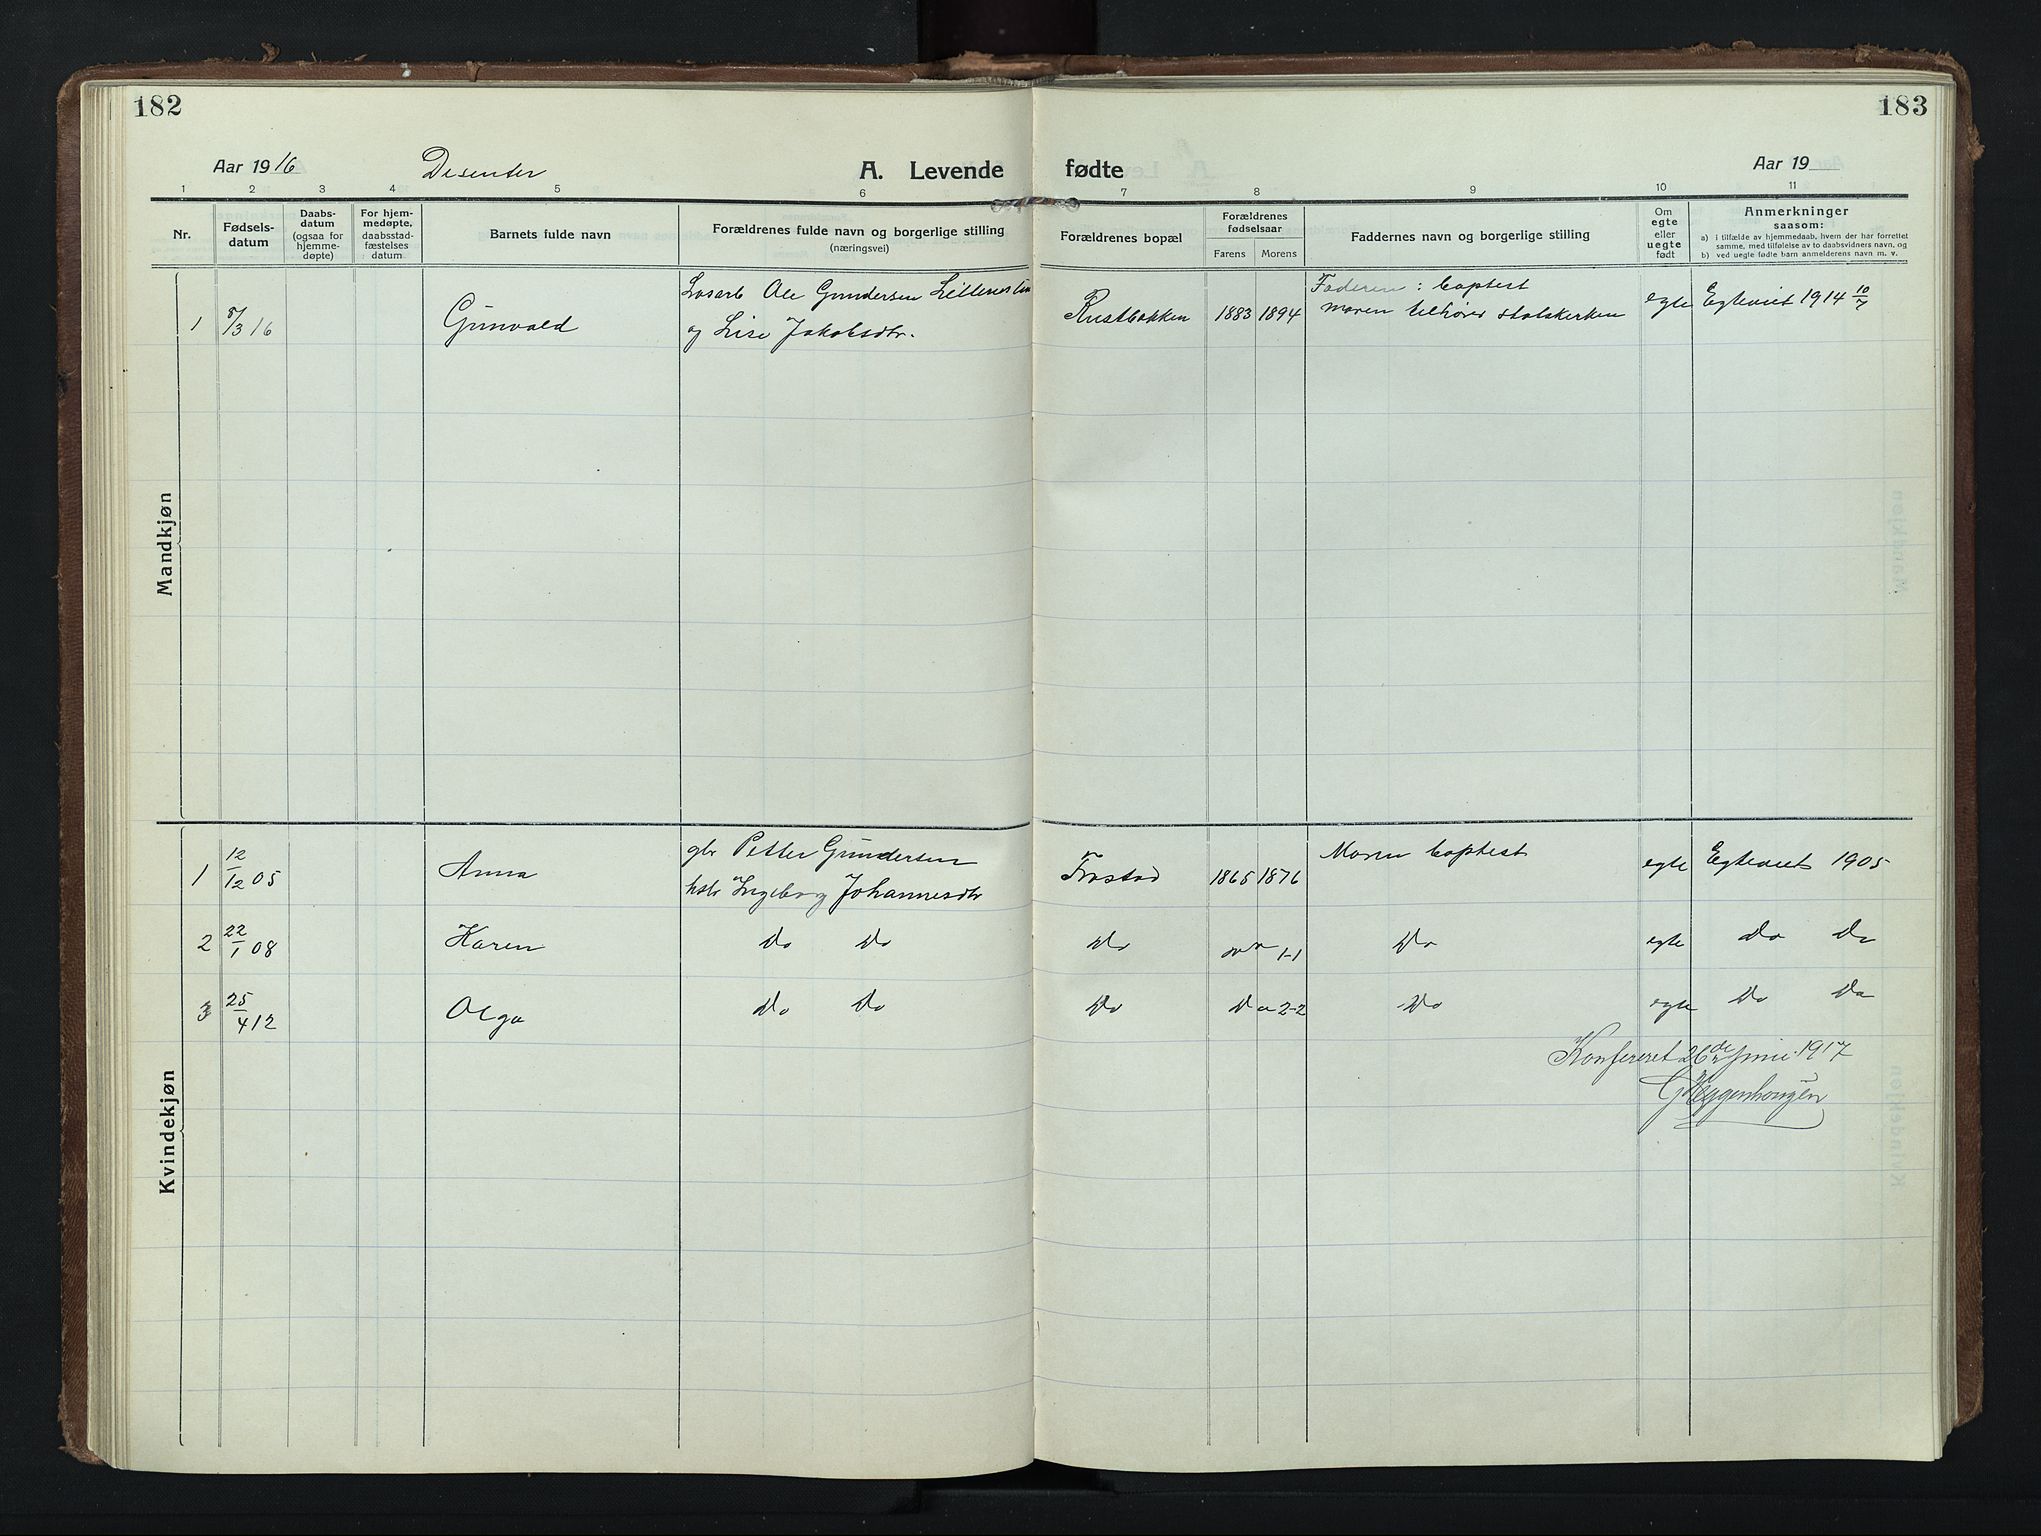 182
183
Aar 1916 Desenter A. Levende fødte Aar 19
1 2 3 4 5 6 7 8 9 10 11
Nr.
Fødsels-
datum
Daabs-
datum
(ogsaa for
hjemme-
døpte)
For hjem-
medøpte,
daabsstad-
fæstelses
datum
Barnets fulde navn
Forældrenes fulde navn og borgerlige stilling
(næringsvei)
Forældrenes bopæl
Forældrenes
fødselsaar
Farens Morens
Faddernes navn og borgerlige stilling
Om
egte
eller
uegte
født
Anmerkninger
saasom:
a) i tilfælde av hjemmedaab, hvem der har forrettet
samme, med tilføielse av to daabsvidners navn, og
b) ved uegte fødte barn anmelderens navn m. v.
Mandkjøn
1 8/3 16 Gunvald
Løsarb Ole Gundersen
og Lise Jakobsdtr.
Rustbakken 1883 1894
Faderen: baptest
moren tilhører statskirken
egte Egteviet 1914 10/7
Kvindekjøn
1 12/12 05 Anna
gbr Petter Gundersen
hstr Ingeborg Johannesdtr
Frostad 1865 1876 Moren baptest egte Egteviet 1905
2 22/1 08 Karen Do Do Do 1-1 Do egte Do Do
3 25/4 12 Olga Do Do Do Do 2-2 Do egte Do Do
Konfereret 26de Juni 1917
G Heggenhougen